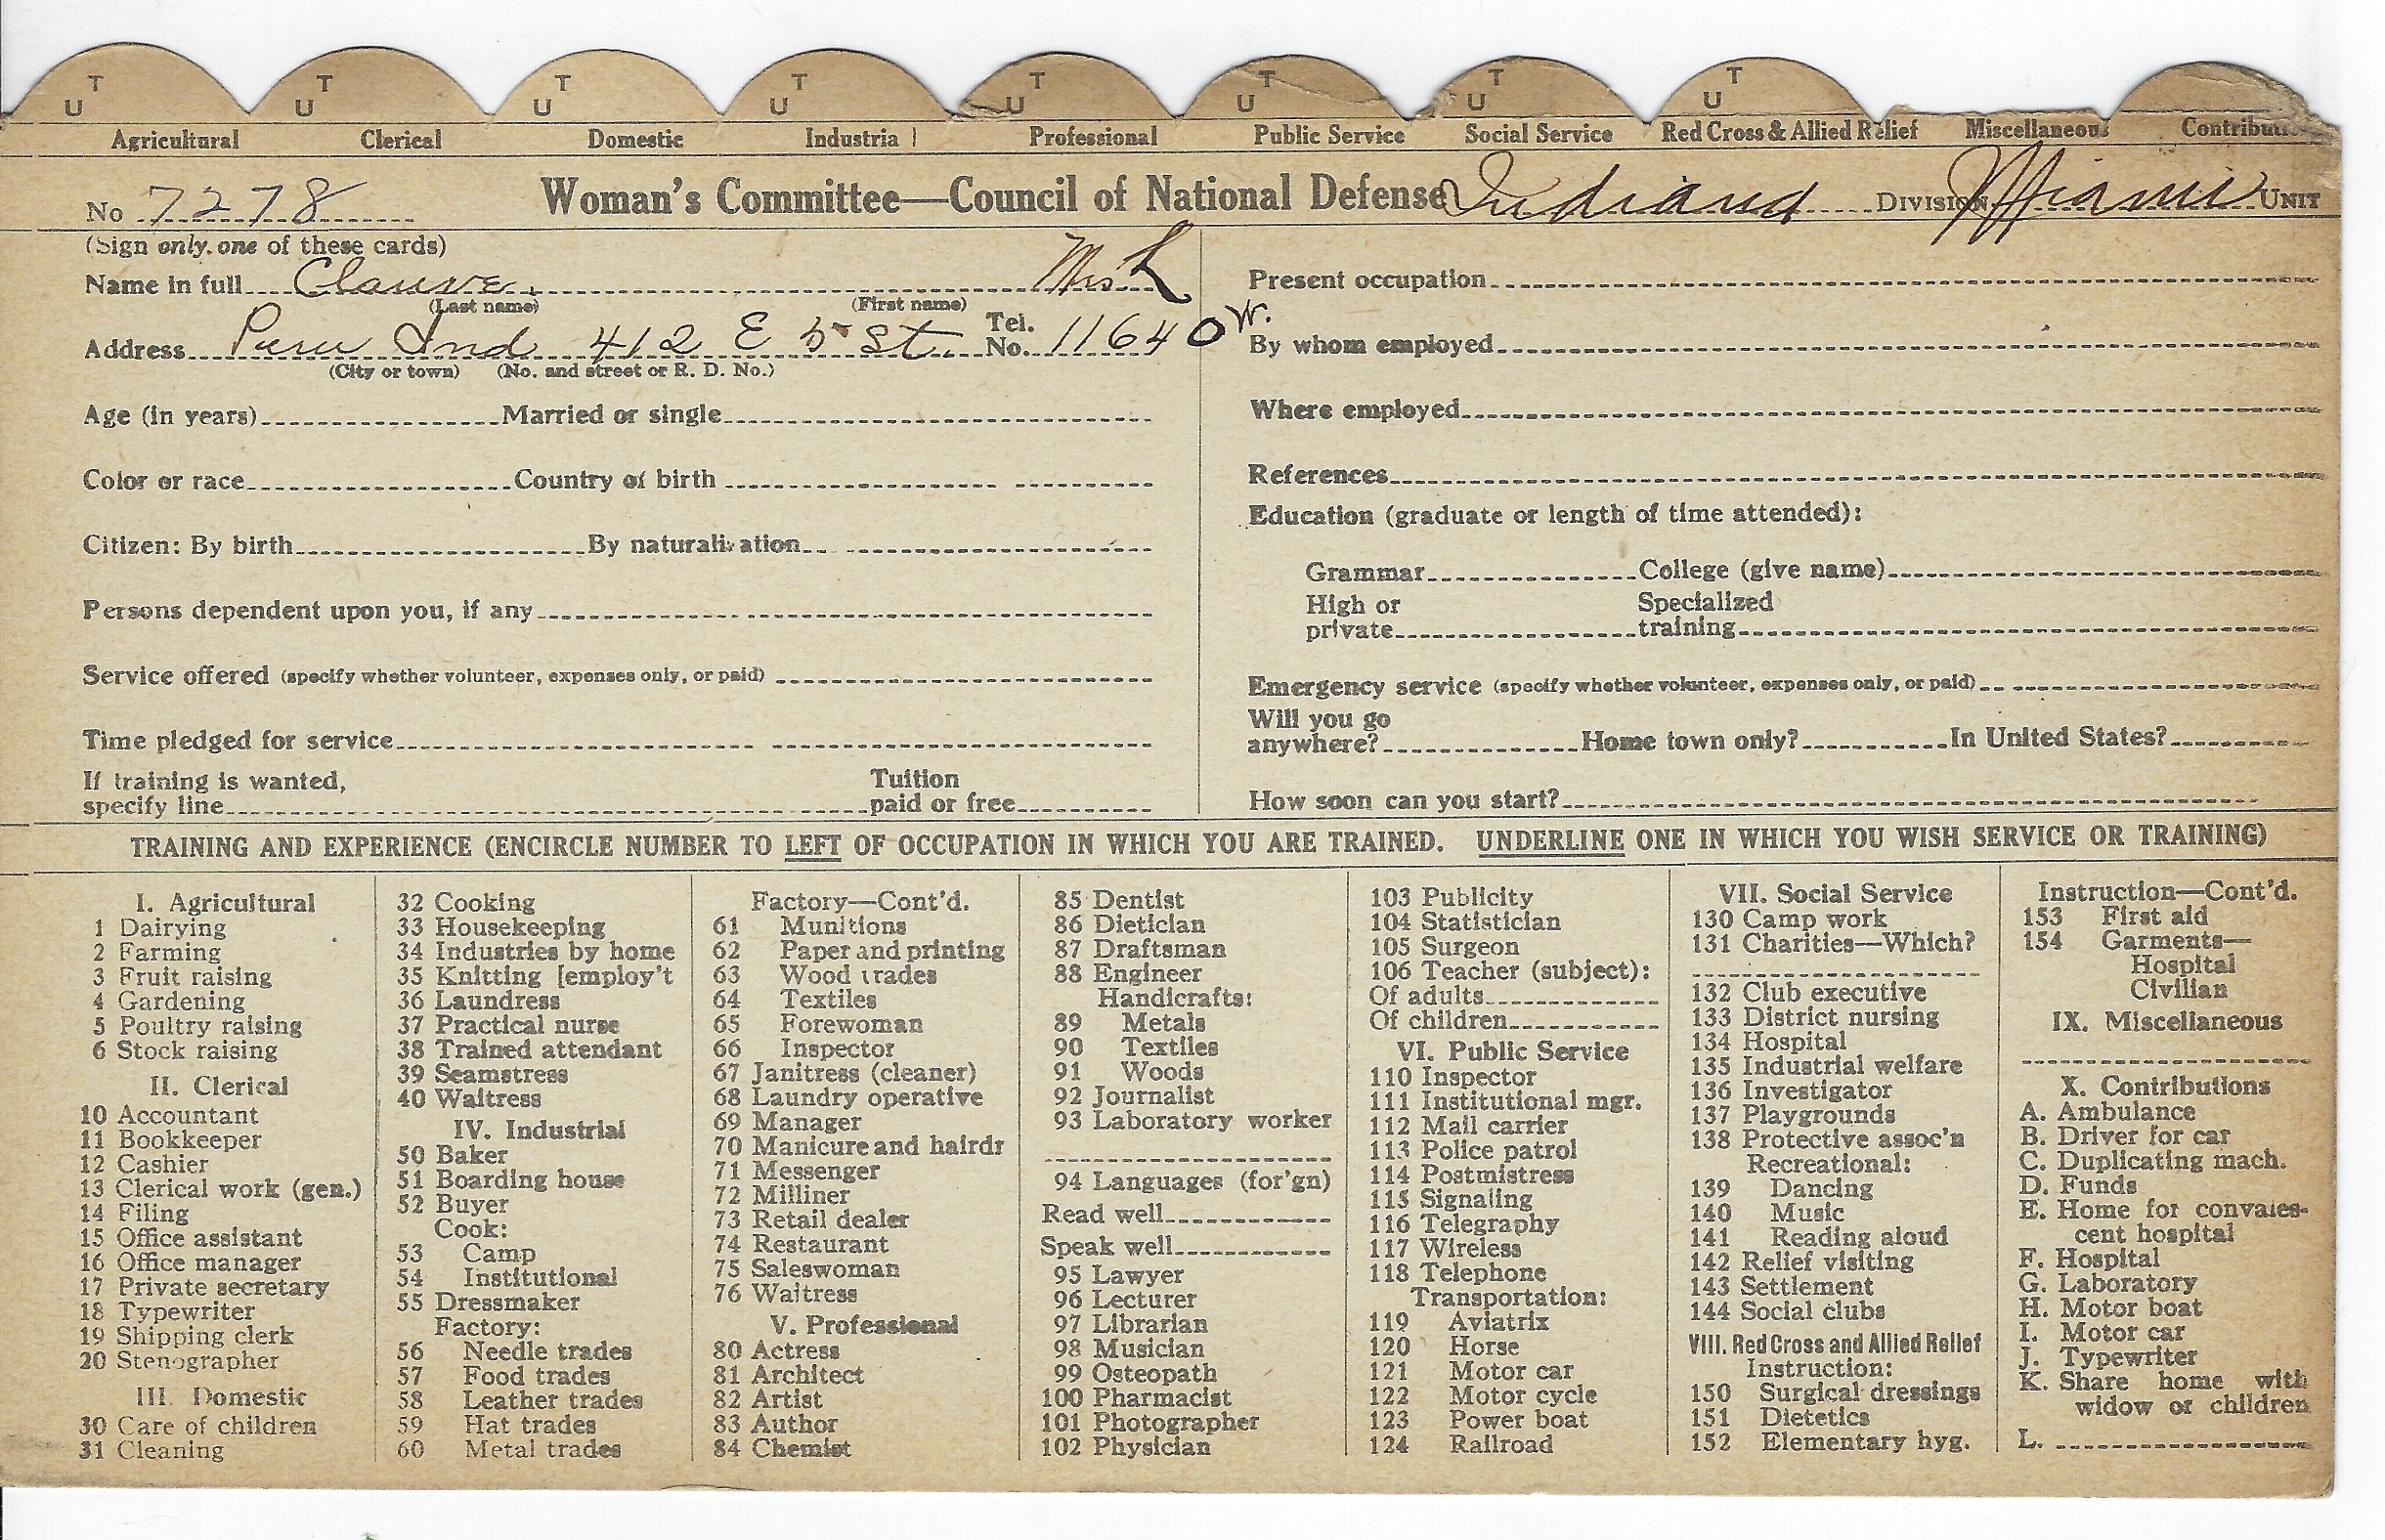 T T T T T T T T
U U U U U U U U
Agricultural Clerical Domestic Industrial Professional Public Service Social Service Red Cross & Allied Relief Miscellaneous
No 7278 Woman's Committee—Council of National Defense Indiana Division Miami Unit
(Sign only one of these cards)
Name in full Clauve, Mrs L
(Last name) (First name)
Address Peru Ind 412 E 5 St. Tel. No. 11640 W.
(City or town) (No. and street or R. D. No.)
Age (in years) Married or single
Color or race Country of birth
Citizen: By birth By naturalization
Persons dependent upon you, if any
Service offered (specify whether volunteer, expenses only, or paid)
Time pledged for service
If training is wanted,
specify line
Tuition
paid or free
Present occupation
By whom employed
Where employed
References
Education (graduate or length of time attended):
Grammar College (give name)
High or
private
Specialized
training
Emergency service (specify whether volunteer, expenses only, or paid)
Will you go
anywhere? Home town only? In United States?
How soon can you start?
TRAINING AND EXPERIENCE (ENCIRCLE NUMBER TO LEFT OF OCCUPATION IN WHICH YOU ARE TRAINED. UNDERLINE ONE IN WHICH YOU WISH SERVICE OR TRAINING)
I. Agricultural
1 Dairying
2 Farming
3 Fruit raising
4 Gardening
5 Poultry raising
6 Stock raising
II. Clerical
10 Accountant
11 Bookkeeper
12 Cashier
13 Clerical work (gen.)
14 Filing
15 Office assistant
16 Office manager
17 Private secretary
18 Typewriter
19 Shipping clerk
20 Stenographer
III. Domestic
30 Care of children
31 Cleaning
32 Cooking
33 Housekeeping
34 Industries by home
35 Knitting [employ't
36 Laundress
37 Practical nurse
38 Trained attendant
39 Seamstress
40 Waitress
IV. Industrial
50 Baker
51 Boarding house
52 Buyer
Cook:
53 Camp
54 Institutional
55 Dressmaker
Factory:
56 Needle trades
57 Food trades
58 Leather trades
59 Hat trades
60 Metal trades
Factory—Cont'd.
61 Munitions
62 Paper and printing
63 Wood trades
64 Textiles
65 Forewoman
66 Inspector
67 Janitress (cleaner)
68 Laundry operative
69 Manager
70 Manicure and hairdr
71 Messenger
72 Milliner
73 Retail dealer
74 Restaurant
75 Saleswoman
76 Waitress
V. Professional
80 Actress
81 Architect
82 Artist
83 Author
84 Chemist
85 Dentist
86 Dietician
87 Draftsman
88 Engineer
Handicrafts:
89 Metals
90 Textiles
91 Woods
92 Journalist
93 Laboratory worker
94 Languages (for'gn)
Read well
Speak well
95 Lawyer
96 Lecturer
97 Librarian
98 Musician
99 Osteopath
100 Pharmacist
101 Photographer
102 Physician
103 Publicity
104 Statistician
105 Surgeon
106 Teacher (subject):
Of adults
Of children
VI. Public Service
110 Inspector
111 Institutional mgr.
112 Mail carrier
113 Police patrol
114 Postmistress
115 Signaling
116 Telegraphy
117 Wireless
118 Telephone
Transportation:
119 Aviatrix
120 Horse
121 Motor car
122 Motor cycle
123 Power boat
124 Railroad
VII. Social Service
130 Camp work
131 Charities—Which?
132 Club executive
133 District nursing
134 Hospital
135 Industrial welfare
136 Investigator
137 Playgrounds
138 Protective assoc'n
Recreational:
139 Dancing
140 Music
141 Reading aloud
142 Relief visiting
143 Settlement
144 Social clubs
VIII. Red Cross and Allied Relief
Instruction:
150 Surgical dressings
151 Dietetics
152 Elementary hyg.
Instruction—Cont'd.
153 First aid
154 Garments—
Hospital
Civilian
IX. Miscellaneous
X. Contributions
A. Ambulance
B. Driver for car
C. Duplicating mach.
D. Funds
E. Home for convales-
cent hospital
F. Hospital
G. Laboratory
H. Motor boat
I. Motor car
J. Typewriter
K. Share home with
widow or children
L.